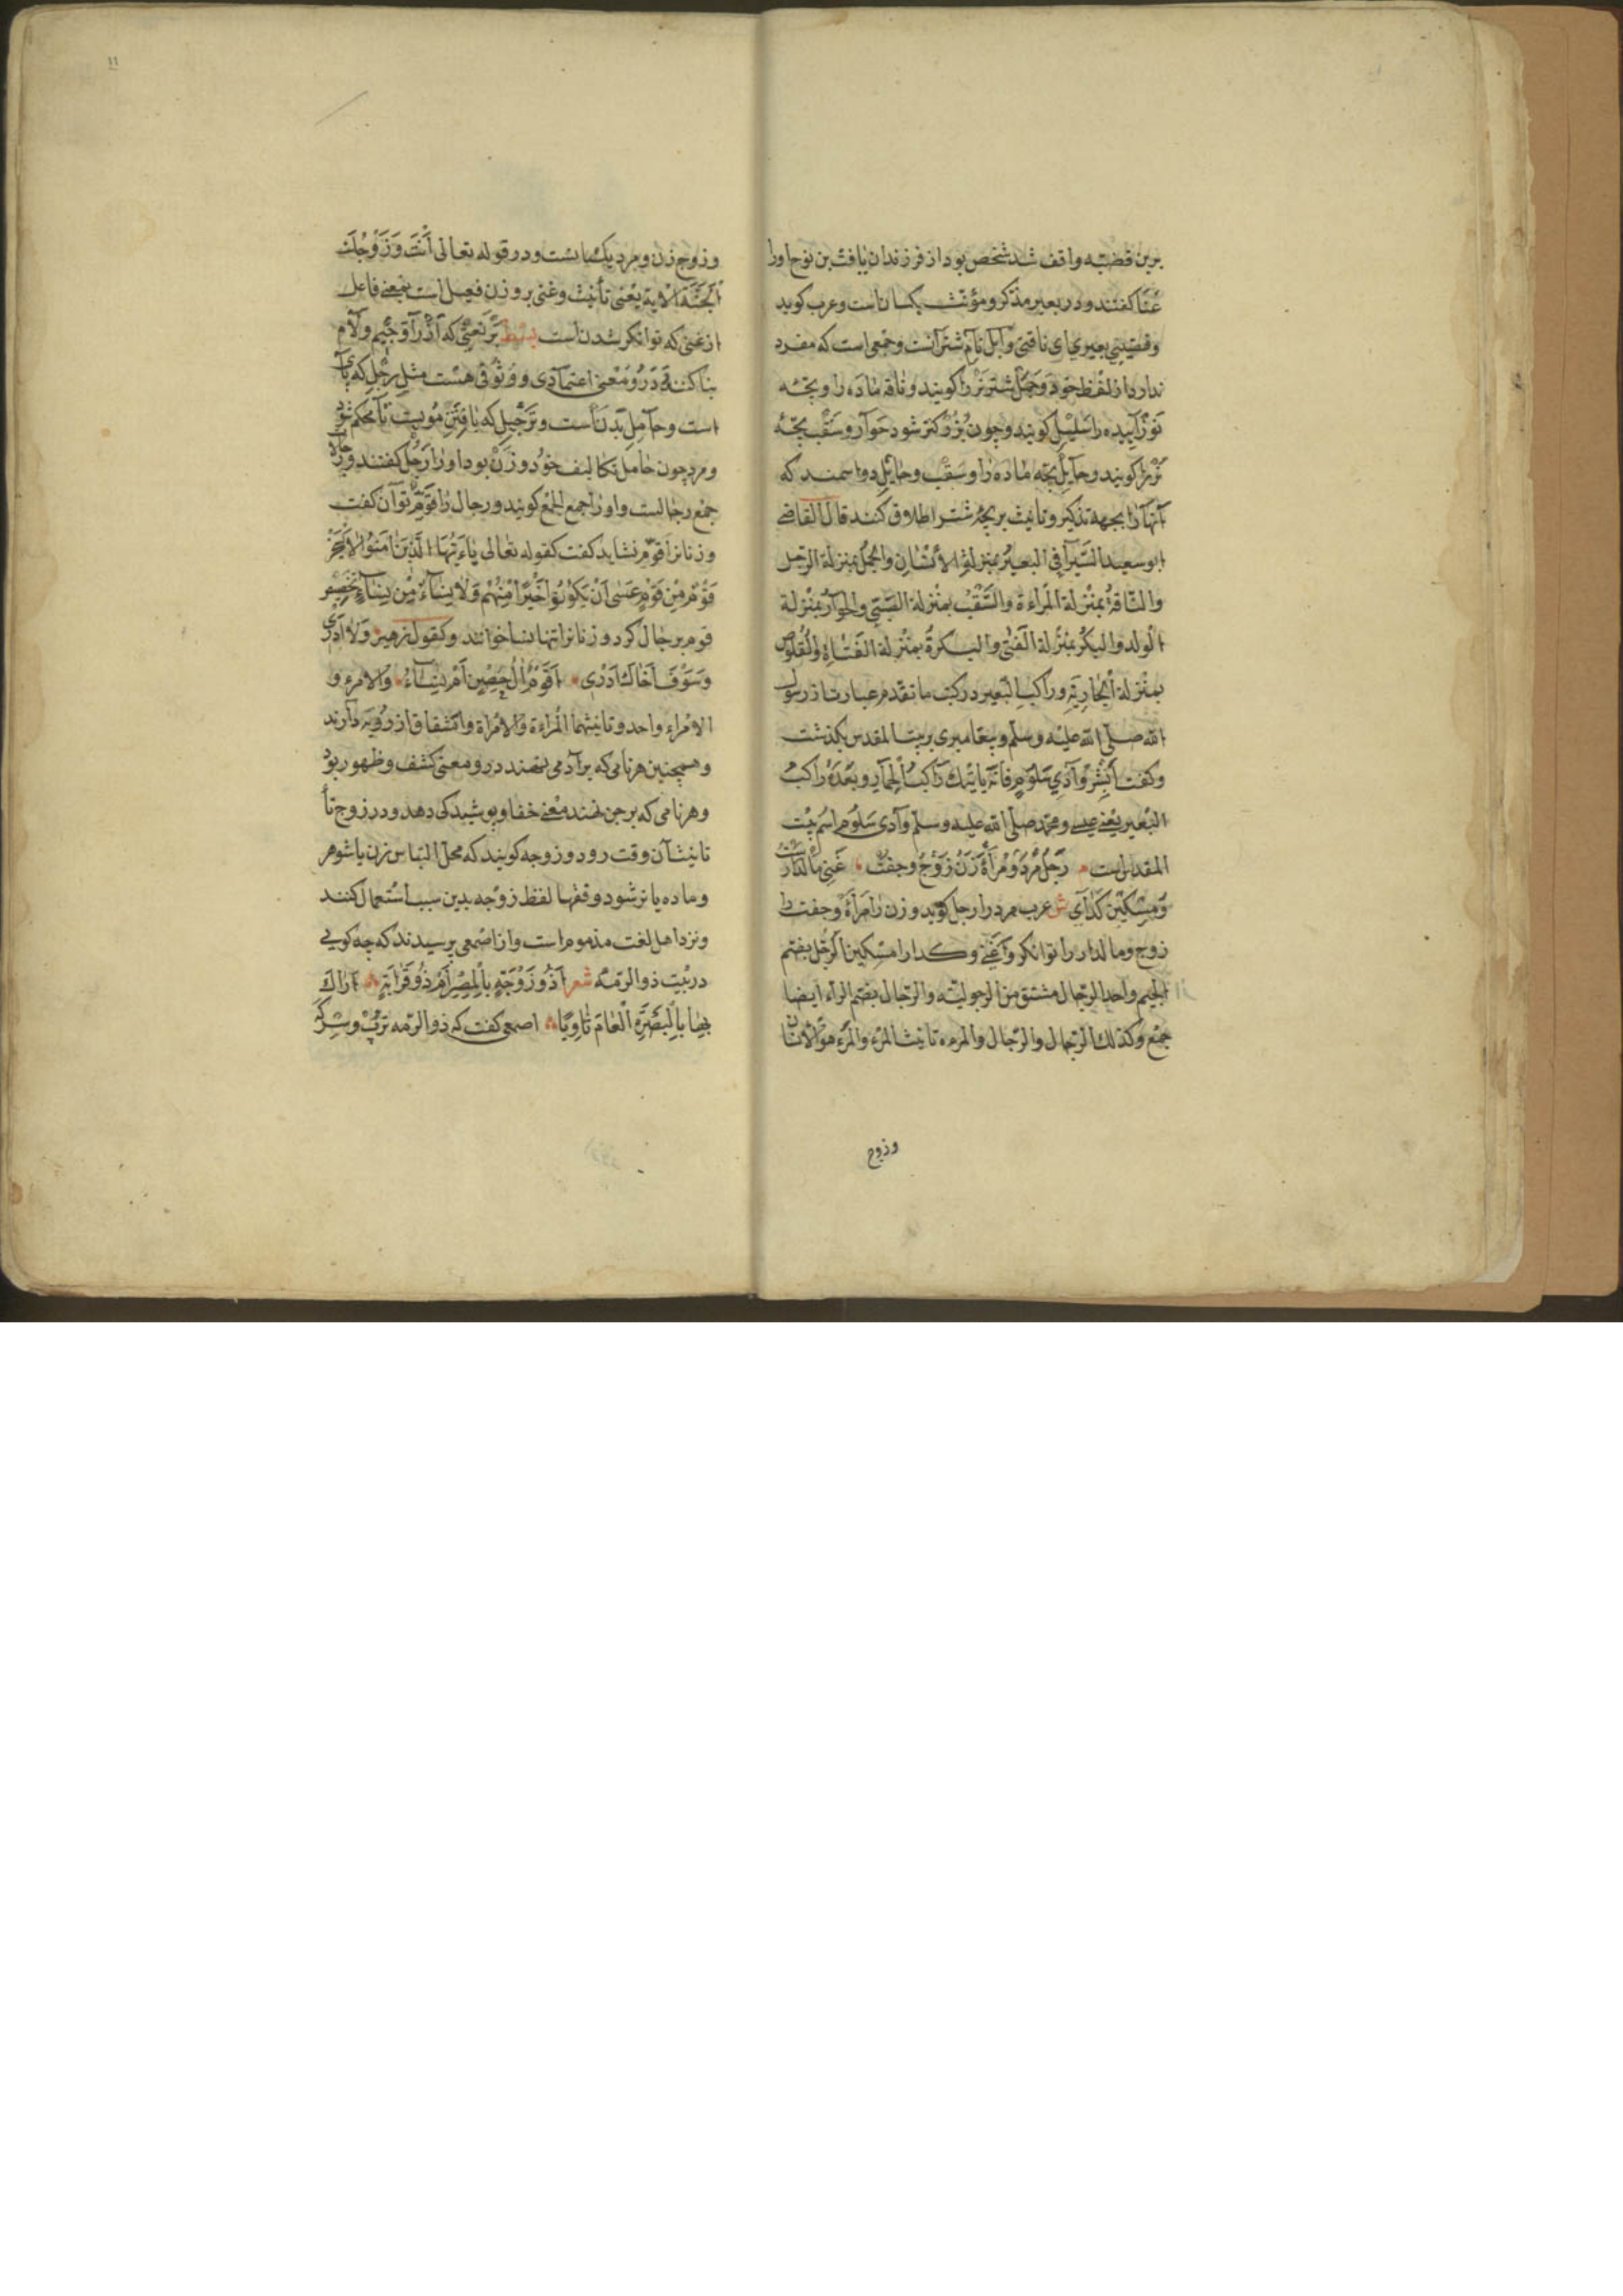 برین قضیّه واقف شد شخص بود از فرزندان یافث بن نوح اورا
عنا کفتند ودر بعیر مذکر ومؤنث یکسانست وعرب کوید
بعیری ای ناقتی وابل نام شترانست وجمعی است که مفرد
ندارد از لفظ خود وجمل شتر نر را کویند وناقه ماده را وبچّه
نوزاییده را سلیل کویند وچون بزرکتر شود حوار وسقب بچّهٔ
نر را کویند وحایل بچّه ماده را وسقب وحایل دو اسمند که
آنها را بجهة تذکیر وتانیث بر بچهٔ شتر اطلاق کنند قال القاضی
ابو سعید السّیرافی البعیر بمنزلة الأنسان والجمل بمنزلة الرّجل
والنّاقة بمنزلة المراءة والسّقب بمنزلة الصّبّی والحوار بمنزلة
الولد والبکر بمنزلة الفتی والبکرة بمنزلة الفتاة والقلوص
بمنزلة الجاریة وراکب البعیر در کتب ما تقدم عبارت از رسول
الله صلّی الله علیه وسلّم وپیغامبری بر بیت المقدس بکذشت
وکفت ابشر وادی سلوم فانّه یاتیک راکب الحمار وبعده راکب
البعیر یعنی عیسی ومحمّد صلّی الله علیه وسلّم وآدی سلوم اسم بیت
المقدس است رجل مرد ومراة زن زوج وجفت غنی مالدار
ومسکین کدای ش عرب مرد را رجل کوید وزن را امراة وجفت را
زوج ومالدار را توانکر وغنی وکدا را مسکین الرّجل بضم
الجیم واحد الرّجال مشتق من الرجولیّه والرّجال بضم الراء ایضا
جمع وکذلک الرّجال والرّجال والمرءه تانیث المرء والمرء هو الانسان
وزوج
۱۱
وزوج زن ومرد یکسانست ودر قوله تعالی أنت وزوجک
الجنّة الایة یعنی تأنیث وغنی بر وزن فعیل است بمعنی فاعل
از غنی که توانکر شدن است بسط بر یعنی که از را وجیم ولام
بنا کنند درو معنی اعتمادی ووثوقی هست مثل رجل که پای
است وحامل بدنست وترجیل که بافتن مویست تا محکم شود
ومرد چون حامل تکالیف خود وزن بود اورا رجل کفتند ورجالات
جمع رجالست واورا جمع الجمع کویند ورجال را قوم توان کفت
وزنانرا قوم نشاید کفت کقوله تعالی یا ایّها الّذین امنوا لا یسخر
قوم من قوم عسی ان یکونوا خیرا منهم ولا نساء من نساء تخصیص
قوم برجال کرد وزنانرا تنها نسا خواند وکقول زهیر ولا ادری
وسوف اخال ادری اقوم ال حصن ام نساء والامرء و
الامراء واحد وتانیثهما المراءة والامراة واشتقاق از رویه دارند
وهمچنین هر نامی که بر آدمی نهند درو معنی کشف وظهور بود
وهر نامی که بر جن نهند معنی خفا وپوشیدکی دهد ودر زوج تا
تانیث آن وقت رود وزوجه کویند که محل التباس زن با شوهر
وماده با نر شود وفقها لفظ زوجه بدین سبب استعمال کنند
ونزد اهل لغت مذموم است واز اصمعی پرسیدند که چه کویی
در بیت ذو الرّمه شعر اذو زوجة بالمصر ام ذو قرابة اراک
لها بالبصرة العام ثاویا اصمعی کفت که ذو الرّمه ترب وسرکه